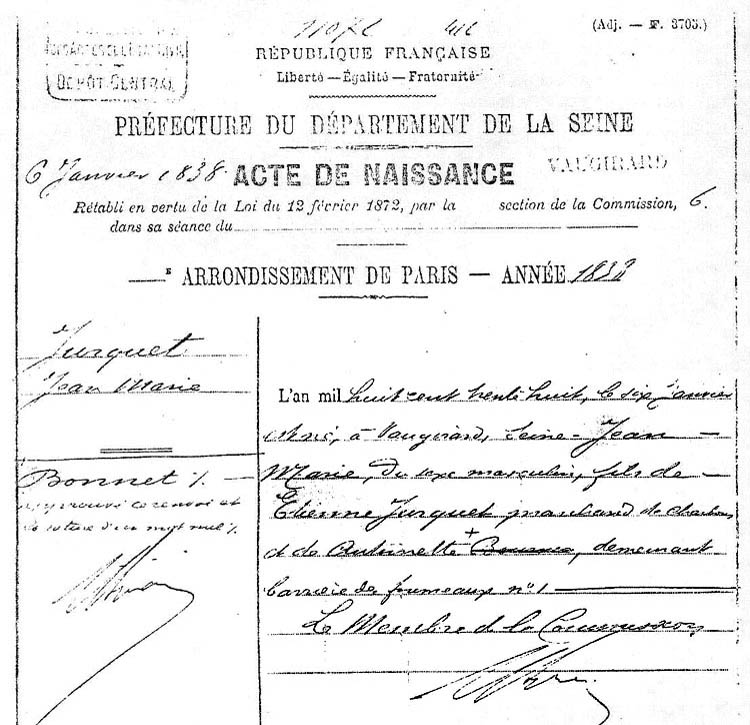 (Adj. — F. 3703.)
DÉPÔT CENTRAL
RÉPUBLIQUE FRANÇAISE
Liberté — Égalité — Fraternité
PRÉFECTURE DU DÉPARTEMENT DE LA SEINE
6 Janvier 1838 ACTE DE NAISSANCE VAUGIRARD
Rétabli en vertu de la Loi du 12 février 1872, par la section de la Commission, 6.
dans sa séance du
—e ARRONDISSEMENT DE PARIS — ANNÉE 1838
Jurquet
Jean Marie
Bonnet %. —
approuvé ce renvoi et
la rature d'un mot nul %.
L'an mil huit cent trente huit, le six janvier
est né, à Vaugirard, Seine Jean
Marie, du sexe masculin, fils de
Etienne Jurquet marchand de charbons
et de Antoinette +, demeurant
barrière des fourneaux n° 1
Le Membre de la Commission